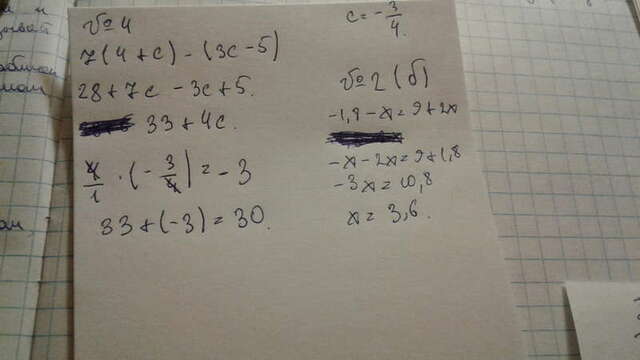 № 4
7(4+c) - (3c-5)
28+7c - 3c+5.
33+4c.
4/1 · (-3/4) = -3
33+(-3) = 30.
c = -3/4.
№ 2 (б)
-1,8-x = 9+2x
-x-2x = 9+1,8
-3x = 10,8
x = 3,6.